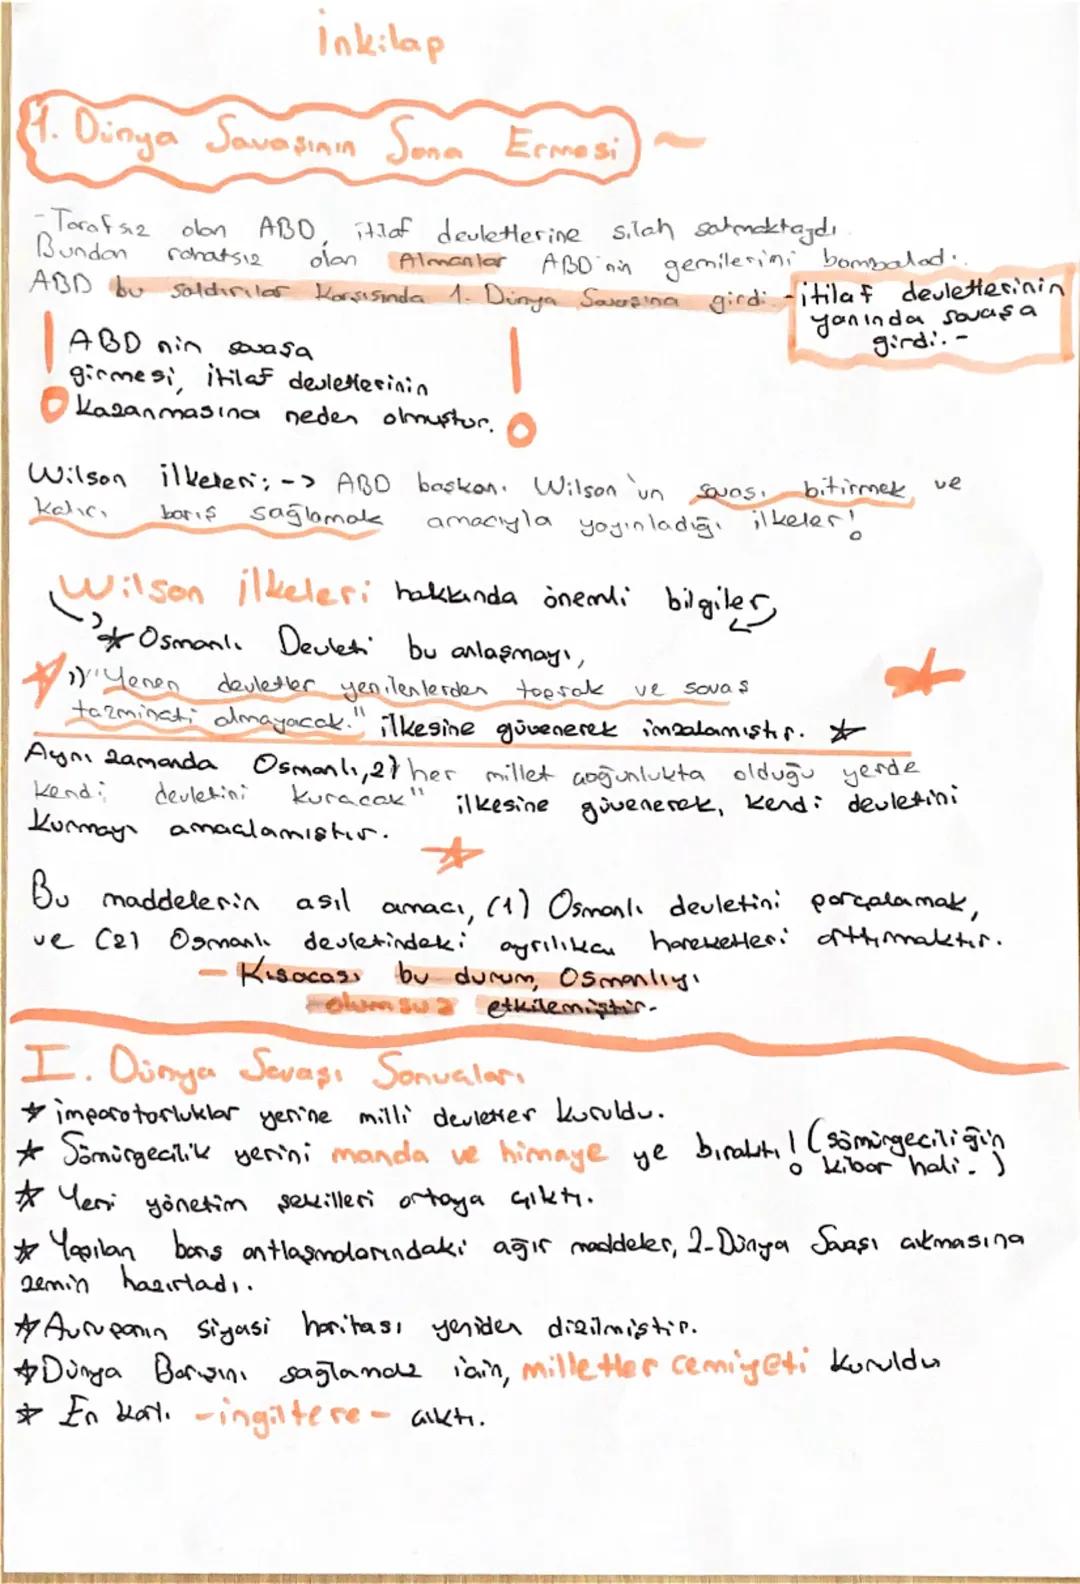 İnkilap
1. Dünya Savaşının Sona Ermesi
-Tarafsız olan ABD, itilaf devletlerine silah satmaktaydı.
Bundan rahatsız olan Almanlar ABD'nin gemilerini bombaladı.
ABD bu saldırılar karşısında 1. Dünya Savaşına girdi. -itilaf devletlerinin
yanında savaşa
girdi. -
ABD nin savaşa
girmesi, itilaf devletlerinin
kazanmasına neden olmuştur.
Wilson ilkeleri; -> ABD başkanı Wilson'un savaşı bitirmek ve
kalıcı barış sağlamak amacıyla yayınladığı ilkeler!
Wilson ilkeleri hakkında önemli bilgiler
* Osmanlı Devleti bu anlaşmayı,
1) "Yenen devletler yenilenlerden toprak ve savaş
tazminatı almayacak." ilkesine güvenerek imzalamıştır. *
Aynı zamanda Osmanlı, 2) her millet çoğunlukta olduğu yerde
kendi devletini kuracak" ilkesine güvenerek, kendi devletini
kurmayı amaçlamıştır.
Bu maddelerin asıl amacı, (1) Osmanlı devletini parçalamak,
ve (2) Osmanlı devletindeki ayrılıkçı hareketleri arttırmaktır.
- Kısacası bu durum, Osmanlıyı
olumsuz etkilemiştir.
I. Dünya Savaşı Sonuçları
* imparatorluklar yerine milli devletler kuruldu.
* Sömürgecilik yerini manda ve himaye ye bıraktı! (sömürgeciliğin
kibar hali.)
* Yeni yönetim şekilleri ortaya çıktı.
* Yapılan barış antlaşmalarındaki ağır maddeler, 2. Dünya Saaşı çıkmasına
zemin hazırladı.
* Avrupanın siyasi haritası yeniden dizilmiştir.
* Dünya Barışını sağlamak için, milletler cemiyeti kuruldu
* En karlı -ingiltere- çıktı.